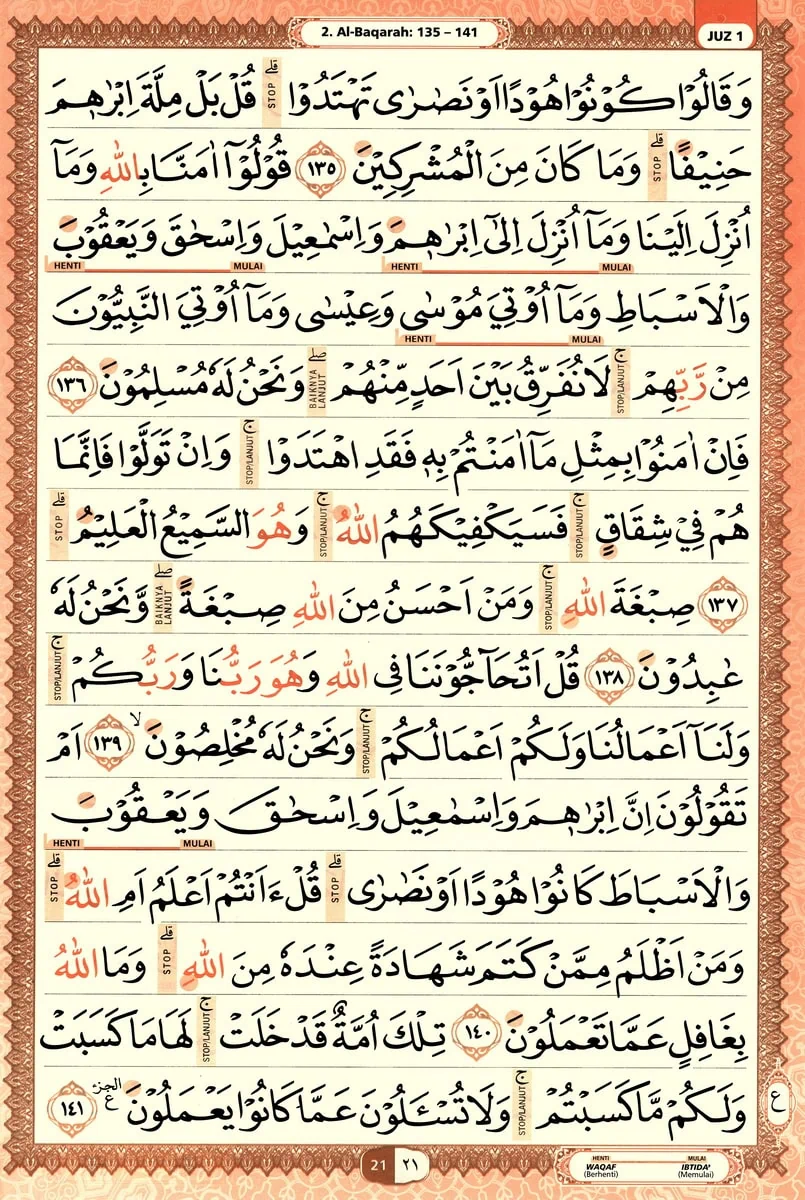 2. Al-Baqarah: 135 – 141
JUZ 1
وَقَالُوْا كُوْنُوْا هُوْدًا اَوْ نَصٰرٰى تَهْتَدُوْا ۗ STOP قُلْ بَلْ مِلَّةَ اِبْرٰهٖمَ
حَنِيْفًا ۗ STOP وَمَا كَانَ مِنَ الْمُشْرِكِيْنَ ١٣٥ قُوْلُوْٓا اٰمَنَّا بِاللّٰهِ وَمَآ
اُنْزِلَ اِلَيْنَا وَمَآ اُنْزِلَ اِلٰٓى اِبْرٰهٖمَ وَاِسْمٰعِيْلَ وَاِسْحٰقَ وَيَعْقُوْبَ
MULAI HENTI MULAI HENTI
وَالْاَسْبَاطِ وَمَآ اُوْتِيَ مُوْسٰى وَعِيْسٰى وَمَآ اُوْتِيَ النَّبِيُّوْنَ
MULAI HENTI
مِنْ رَّبِّهِمْ ۚ STOP/LANJUT لَا نُفَرِّقُ بَيْنَ اَحَدٍ مِّنْهُمْ ۖ BAIKNYA LANJUT وَنَحْنُ لَهٗ مُسْلِمُوْنَ ١٣٦
فَاِنْ اٰمَنُوْا بِمِثْلِ مَآ اٰمَنْتُمْ بِهٖ فَقَدِ اهْتَدَوْا ۚ STOP/LANJUT وَاِنْ تَوَلَّوْا فَاِنَّمَا
هُمْ فِيْ شِقَاقٍ ۚ STOP/LANJUT فَسَيَكْفِيْكَهُمُ اللّٰهُ ۚ STOP/LANJUT وَهُوَ السَّمِيْعُ الْعَلِيْمُ ۗ STOP
١٣٧ صِبْغَةَ اللّٰهِ ۚ STOP/LANJUT وَمَنْ اَحْسَنُ مِنَ اللّٰهِ صِبْغَةً ۖ BAIKNYA LANJUT وَّنَحْنُ لَهٗ
عٰبِدُوْنَ ١٣٨ قُلْ اَتُحَاۤجُّوْنَنَا فِى اللّٰهِ وَهُوَ رَبُّنَا وَرَبُّكُمْ ۚ STOP/LANJUT
وَلَنَآ اَعْمَالُنَا وَلَكُمْ اَعْمَالُكُمْ ۚ STOP/LANJUT وَنَحْنُ لَهٗ مُخْلِصُوْنَ ۙ ١٣٩ اَمْ
تَقُوْلُوْنَ اِنَّ اِبْرٰهٖمَ وَاِسْمٰعِيْلَ وَاِسْحٰقَ وَيَعْقُوْبَ
MULAI HENTI
وَالْاَسْبَاطَ كَانُوْا هُوْدًا اَوْ نَصٰرٰى ۗ STOP قُلْ ءَاَنْتُمْ اَعْلَمُ اَمِ اللّٰهُ ۗ STOP
وَمَنْ اَظْلَمُ مِمَّنْ كَتَمَ شَهَادَةً عِنْدَهٗ مِنَ اللّٰهِ ۗ STOP وَمَا اللّٰهُ
بِغَافِلٍ عَمَّا تَعْمَلُوْنَ ١٤٠ تِلْكَ اُمَّةٌ قَدْ خَلَتْ ۚ STOP/LANJUT لَهَا مَا كَسَبَتْ
وَلَكُمْ مَّا كَسَبْتُمْ ۚ STOP/LANJUT وَلَا تُسْـَٔلُوْنَ عَمَّا كَانُوْا يَعْمَلُوْنَ الجزء ع ١٤١
ع
21 ٢١
HENTI WAQAF (Berhenti) MULAI IBTIDA' (Memulai)